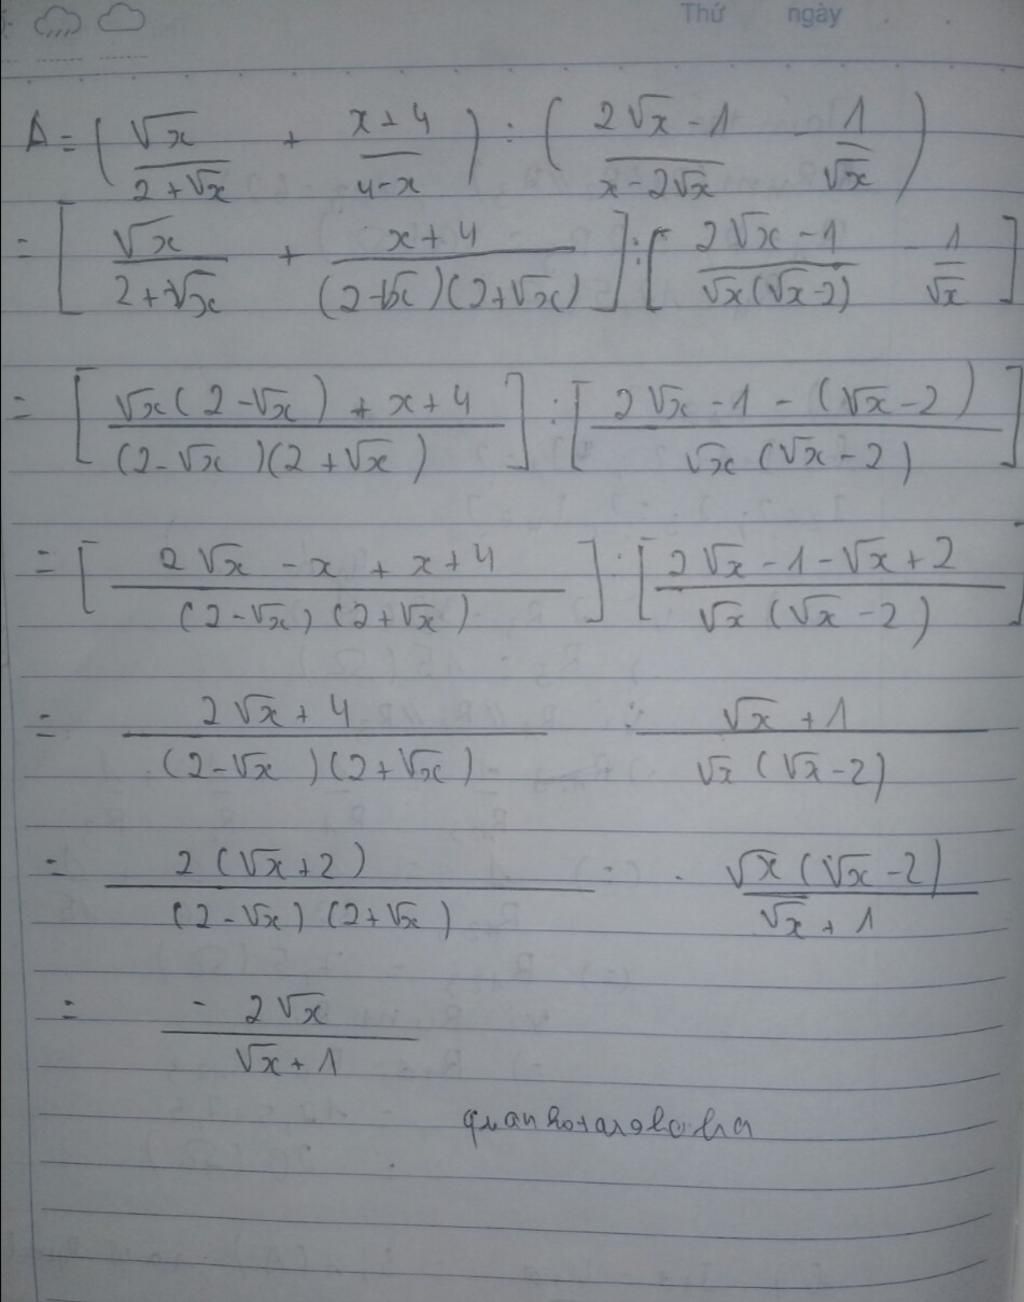 Thứ ngày
A = ( √x / (2+√x) + (x+4) / (4-x) ) : ( (2√x - 1) / (x-2√x) - 1/√x )
= [ √x / (2+√x) + (x+4) / ((2-√x)(2+√x)) ] : [ (2√x - 1) / (√x(√x-2)) - 1/√x ]
= [ (√x(2-√x) + x+4) / ((2-√x)(2+√x)) ] : [ (2√x - 1 - (√x-2)) / (√x(√x-2)) ]
= [ (2√x - x + x+4) / ((2-√x)(2+√x)) ] : [ (2√x - 1 - √x + 2) / (√x(√x-2)) ]
= (2√x + 4) / ((2-√x)(2+√x)) : (√x + 1) / (√x(√x-2))
= 2(√x+2) / ((2-√x)(2+√x)) . √x(√x-2) / (√x + 1)
= -2√x / (√x + 1)